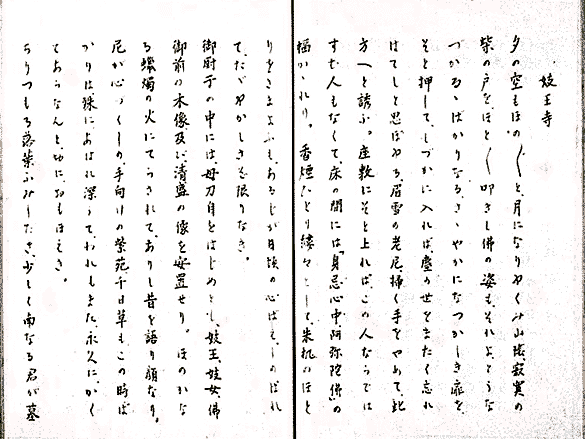 妓王寺
夕の空もほの〴〵と、月になりゆくみ山陰、寂寞の
柴の戸を、ほと〳〵叩きし佛の姿も、それよとうな
づかるゝばかりなる、さゝやかになつかしき扉を
そと押して、しづかに入れば、塵の世をまたく忘れ
はてしと思はゆる、眉雪の老尼、掃く手をやめて、此
方へと誘ふ。座敷にそと上れば、この人ならでは
すむ人もなくて、床の間には「身忌心中、阿弥陀佛」の
幅かゝれり。香煙ひとり縷々として、朱机のほと
りをさまよふも、あるじが日頃の心ばえ、しのばれ
て、たゞゆかしさを限りなき。
御厨子の中には、母刀自をはじめとし、妓王、妓女、佛
御前の木像及び清盛の像を安置せり。ほのかな
る蠟燭の火にてらされて、ありし昔を語り顔なり。
尼が心づくしの、手向けの紫苑、千日草も、この時ば
かりは殊にあはれ深うて、われもまた、永久に、かく
てあらなんと、切に、おもほえき。
ちりつもる落葉ふみしだき、少しく南なる君が墓